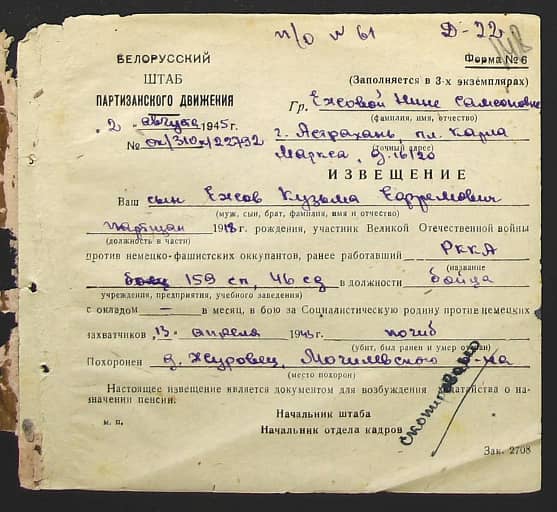 п/о № 61 Д-22
БЕЛОРУССКИЙ
ШТАБ
ПАРТИЗАНСКОГО ДВИЖЕНИЯ
Форма № 6
(Заполняется в 3-х экземплярах)
Гр. Ежовой Нине Самсоновне
(фамилия, имя, отчество)
„2 августа 1945 г.
№ ск/310к/22792
г. Астрахань, пл. Карла
(точный адрес)
Маркса, д. 16/20
ИЗВЕЩЕНИЕ
Ваш сын Ежов Кузьма Ефремович
(муж, сын, брат, фамилия, имя и отчество)
партизан 1918 г. рождения, участник Великой Отечественной войны
(должность в части)
против немецко-фашистских оккупантов, ранее работавший РККА
(название
159 сп, 46 сд в должности бойца
учреждения, предприятия, учебного заведения)
с окладом — в месяц, в бою за Социалистическую родину против немецких
захватчиков „13" апреля 1943 г. погиб
(убит, был ранен и умер от ран)
Похоронен д. Журовец, Могилевского р-на
(место похорон)
Настоящее извещение является документом для возбуждения ходатайства о на-
значении пенсии.
Начальник штаба
м. п.
Начальник отдела кадров
Скопировано
Зак. 2708